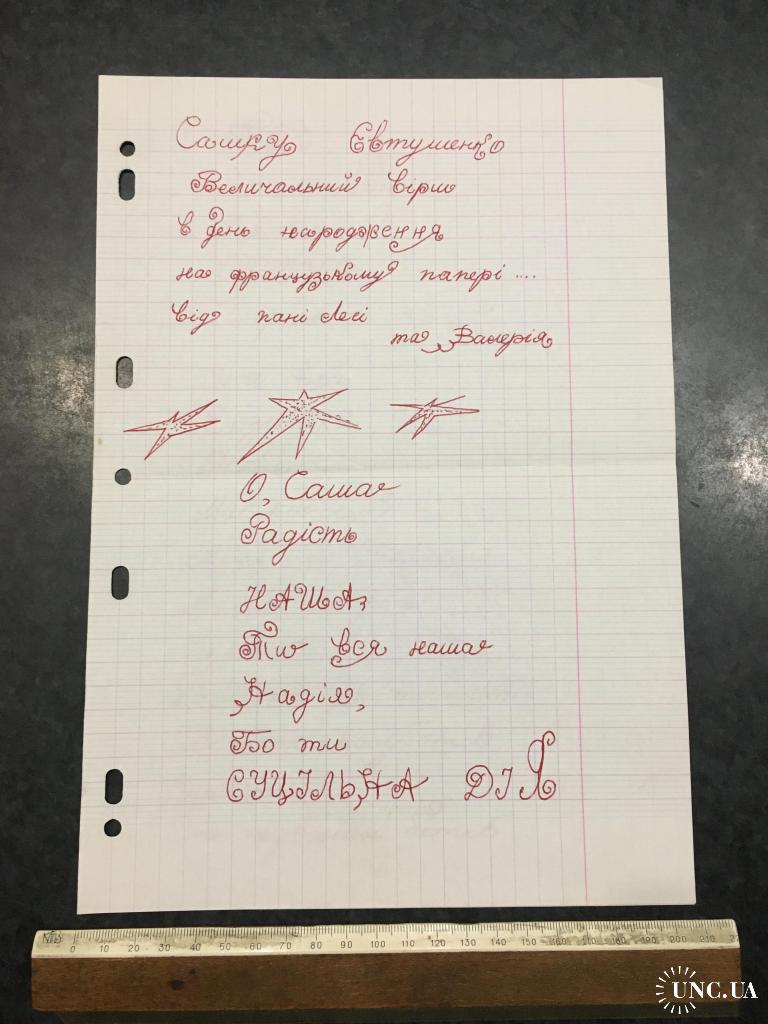 Сашку Євтушенко
Величальний вірш
в день народження
на французькому папері ....
від пані Лесі
та Валерія
О, Саша
Радість
НАША,
Ти вся наша
Надія,
Бо ти
СУЦІЛЬНА ДІЯ
0 10 20 30 40 50 60 70 80 90 100 110 120 130 140 150 160 170 180 190 200 210
UNC.UA